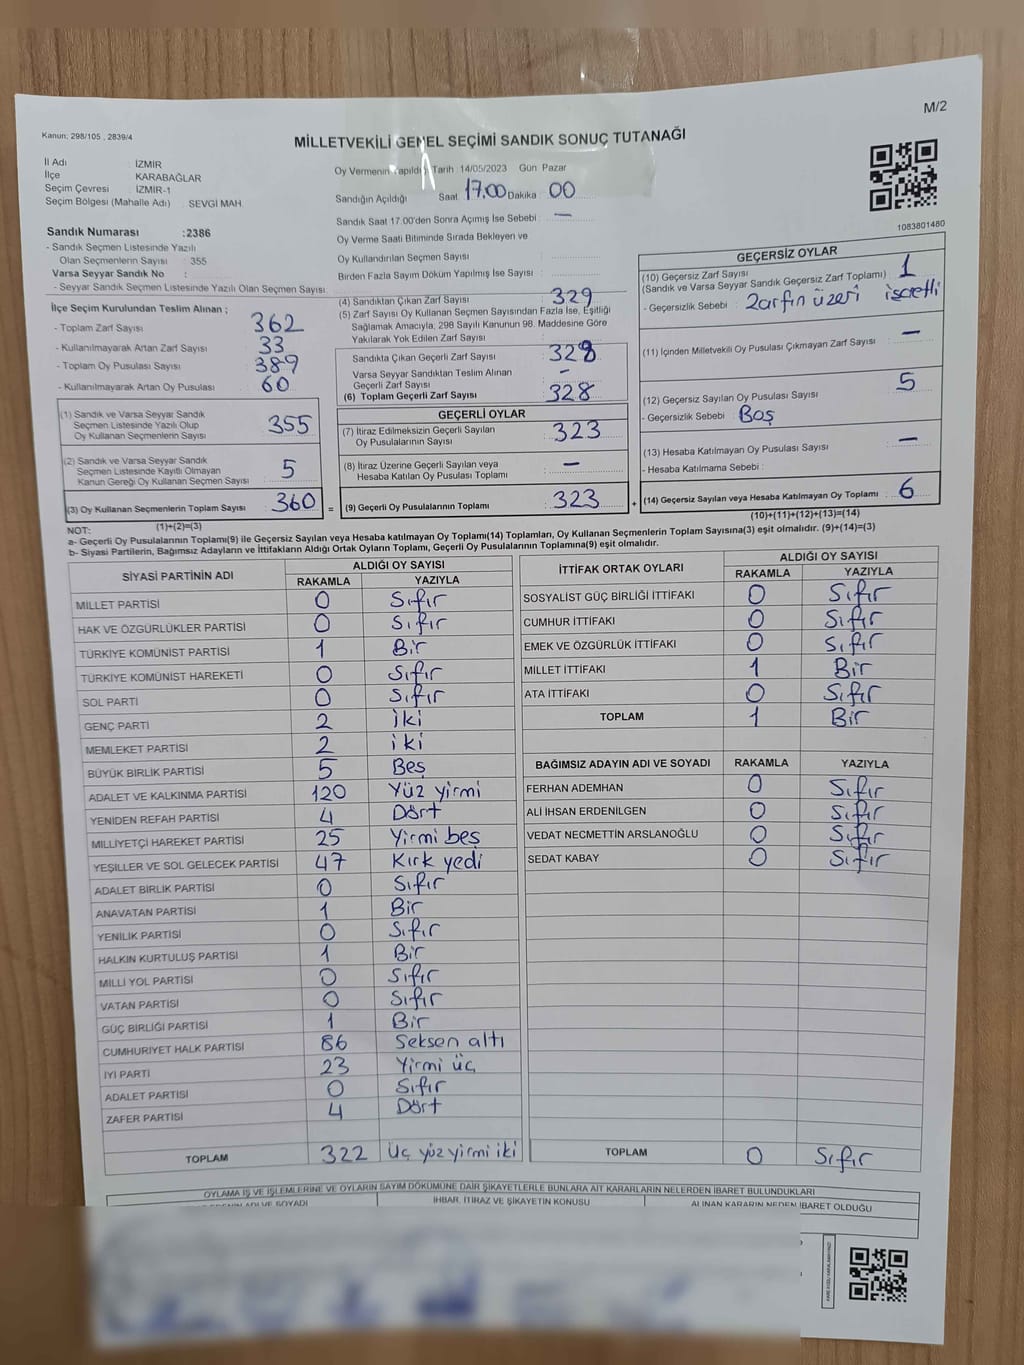 M/2
Kanun: 298/105 , 2839/4
MİLLETVEKİLİ GENEL SEÇİMİ SANDIK SONUÇ TUTANAĞI
İl Adı : İZMİR
İlçe KARABAĞLAR
Seçim Çevresi : İZMİR-1
Seçim Bölgesi (Mahalle Adı) : SEVGİ MAH
Oy Vermenin Yapıldığı Tarih :14/05/2023 Gün Pazar
Sandığın Açıldığı Saat 17.00 Dakika 00
Sandık Saat 17.00'den Sonra Açmış İse Sebebi : —
Oy Verme Saati Bitiminde Sırada Bekleyen ve
Oy Kullandırılan Seçmen Sayısı
Birden Fazla Sayım Döküm Yapılmış İse Sayısı :
1083801480
Sandık Numarası :2386
- Sandık Seçmen Listesinde Yazılı
Olan Seçmenlerin Sayısı : 355
Varsa Seyyar Sandık No :
- Seyyar Sandık Seçmen Listesinde Yazılı Olan Seçmen Sayısı:
İlçe Seçim Kurulundan Teslim Alınan ;
- Toplam Zarf Sayısı 362
- Kullanılmayarak Artan Zarf Sayısı 33
- Toplam Oy Pusulası Sayısı 389
- Kullanılmayarak Artan Oy Pusulası 60
(1) Sandık ve Varsa Seyyar Sandık
Seçmen Listesinde Yazılı Olup
Oy Kullanan Seçmenlerin Sayısı 355
(2) Sandık ve Varsa Seyyar Sandık
Seçmen Listesinde Kayıtlı Olmayan
Kanun Gereği Oy Kullanan Seçmen Sayısı 5
(3) Oy Kullanan Seçmenlerin Toplam Sayısı 360
(1)+(2)=(3)
(4) Sandıktan Çıkan Zarf Sayısı 329
(5) Zarf Sayısı Oy Kullanan Seçmen Sayısından Fazla İse, Eşitliği
Sağlamak Amacıyla, 298 Sayılı Kanunun 98. Maddesine Göre
Yakılarak Yok Edilen Zarf Sayısı :
Sandıkta Çıkan Geçerli Zarf Sayısı 328
Varsa Seyyar Sandıktan Teslim Alınan
Geçerli Zarf Sayısı —
(6) Toplam Geçerli Zarf Sayısı 328
GEÇERLİ OYLAR
(7) İtiraz Edilmeksizin Geçerli Sayılan
Oy Pusulalarının Sayısı 323
(8) İtiraz Üzerine Geçerli Sayılan veya
Hesaba Katılan Oy Pusulası Toplamı —
= (9) Geçerli Oy Pusulalarının Toplamı 323 +
GEÇERSİZ OYLAR
(10) Geçersiz Zarf Sayısı
(Sandık ve Varsa Seyyar Sandık Geçersiz Zarf Toplamı) 1
- Geçersizlik Sebebi : Zarfın üzeri işaretli
(11) İçinden Milletvekili Oy Pusulası Çıkmayan Zarf Sayısı —
(12) Geçersiz Sayılan Oy Pusulası Sayısı 5
- Geçersizlik Sebebi : Boş
(13) Hesaba Katılmayan Oy Pusulası Sayısı —
- Hesaba Katılmama Sebebi :
(14) Geçersiz Sayılan veya Hesaba Katılmayan Oy Toplamı 6
(10)+(11)+(12)+(13)=(14)
NOT:
a- Geçerli Oy Pusulalarının Toplamı(9) ile Geçersiz Sayılan veya Hesaba Katılmayan Oy Toplamı(14) Toplamları, Oy Kullanan Seçmenlerin Toplam Sayısına(3) eşit olmalıdır. (9)+(14)=(3)
b- Siyasi Partilerin, Bağımsız Adayların ve İttifakların Aldığı Ortak Oyların Toplamı, Geçerli Oy Pusulalarının Toplamına(9) eşit olmalıdır.
SİYASİ PARTİNİN ADI ALDIĞI OY SAYISI
RAKAMLA YAZIYLA
MİLLET PARTİSİ 0 Sıfır
HAK VE ÖZGÜRLÜKLER PARTİSİ 0 Sıfır
TÜRKİYE KOMÜNİST PARTİSİ 1 Bir
TÜRKİYE KOMÜNİST HAREKETİ 0 Sıfır
SOL PARTİ 0 Sıfır
GENÇ PARTİ 2 iki
MEMLEKET PARTİSİ 2 iki
BÜYÜK BİRLİK PARTİSİ 5 Beş
ADALET VE KALKINMA PARTİSİ 120 Yüz yirmi
YENİDEN REFAH PARTİSİ 4 Dört
MİLLİYETÇİ HAREKET PARTİSİ 25 Yirmi beş
YEŞİLLER VE SOL GELECEK PARTİSİ 47 Kırk yedi
ADALET BİRLİK PARTİSİ 0 Sıfır
ANAVATAN PARTİSİ 1 Bir
YENİLİK PARTİSİ 0 Sıfır
HALKIN KURTULUŞ PARTİSİ 1 Bir
MİLLİ YOL PARTİSİ 0 Sıfır
VATAN PARTİSİ 0 Sıfır
GÜÇ BİRLİĞİ PARTİSİ 1 Bir
CUMHURİYET HALK PARTİSİ 86 Seksen altı
İYİ PARTİ 23 Yirmi üç
ADALET PARTİSİ 0 Sıfır
ZAFER PARTİSİ 4 Dört
TOPLAM 322 Üç yüz yirmi iki
İTTİFAK ORTAK OYLARI ALDIĞI OY SAYISI
RAKAMLA YAZIYLA
SOSYALİST GÜÇ BİRLİĞİ İTTİFAKI 0 Sıfır
CUMHUR İTTİFAKI 0 Sıfır
EMEK VE ÖZGÜRLÜK İTTİFAKI 0 Sıfır
MİLLET İTTİFAKI 1 Bir
ATA İTTİFAKI 0 Sıfır
TOPLAM 1 Bir
BAĞIMSIZ ADAYIN ADI VE SOYADI RAKAMLA YAZIYLA
FERHAN ADEMHAN 0 Sıfır
ALİ İHSAN ERDENİLGEN 0 Sıfır
VEDAT NECMETTİN ARSLANOĞLU 0 Sıfır
SEDAT KABAY 0 Sıfır
TOPLAM 0 Sıfır
OYLAMA İŞ VE İŞLEMLERİNE VE OYLARIN SAYIM DÖKÜMÜNE DAİR ŞİKAYETLERLE BUNLARA AİT KARARLARIN NELERDEN İBARET BULUNDUKLARI
ADI VE SOYADI İHBAR, İTİRAZ VE ŞİKAYETİN KONUSU ALINAN KARARIN NEDEN İBARET OLDUĞU